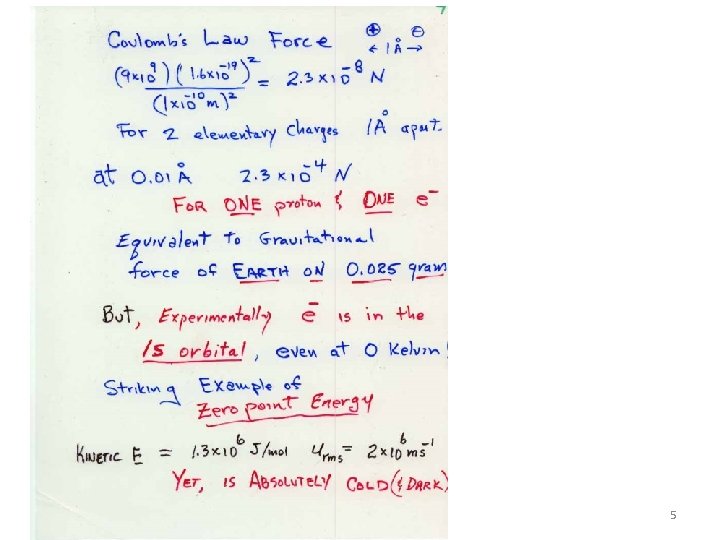 7
Coulomb's Law Force ⊕ ⊖
← 1Å →
(9x10⁹)(1.6x10⁻¹⁹)² / (1x10⁻¹⁰m)² = 2.3x10⁻⁸ N
For 2 elementary charges 1Å apart.
at 0.01 Å 2.3x10⁻⁴ N
FOR ONE proton & ONE e⁻
Equivalent To Gravitational
force of EARTH ON 0.025 gram
But, Experimentally e⁻ is in the
1S orbital, even at 0 Kelvin!
Striking Example of
Zero point Energy
KINETIC E = 1.3x10⁶ J/mol u_rms = 2x10⁶ ms⁻¹
YET, IS ABSOLUTELY COLD (& DARK)
5